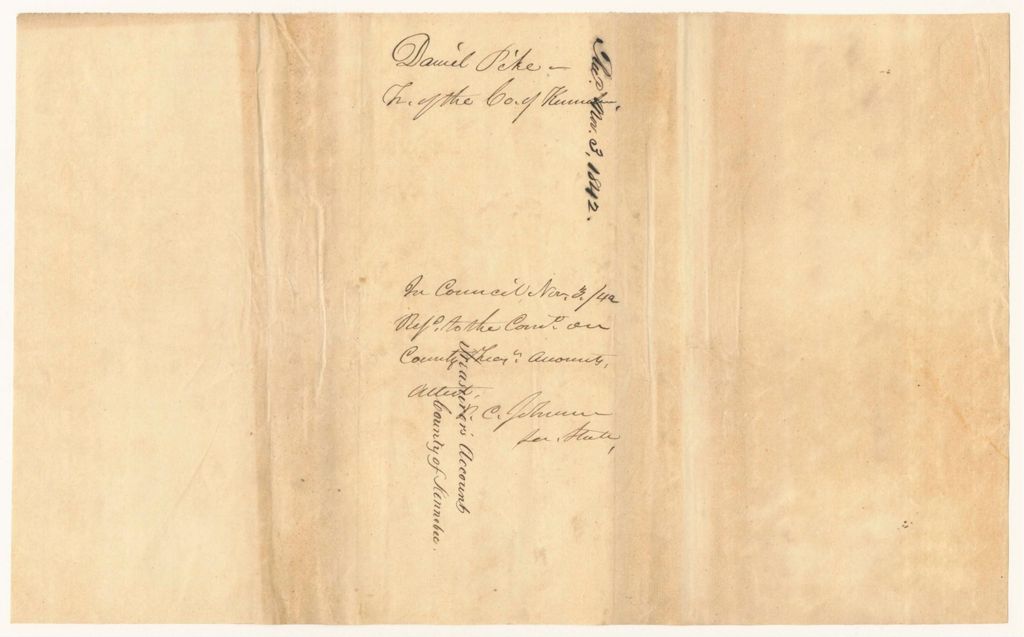 Daniel Pike —
Tr. of the Co. of Kenne
Nov. 3, 1842.
In Council, Nov. 3, /42
Refd. to the Comt. on
County Treasrs. accounts,
Attest,
P. C. Johnson
Sec. State,
Treasurer's Account
County of Kennebec.